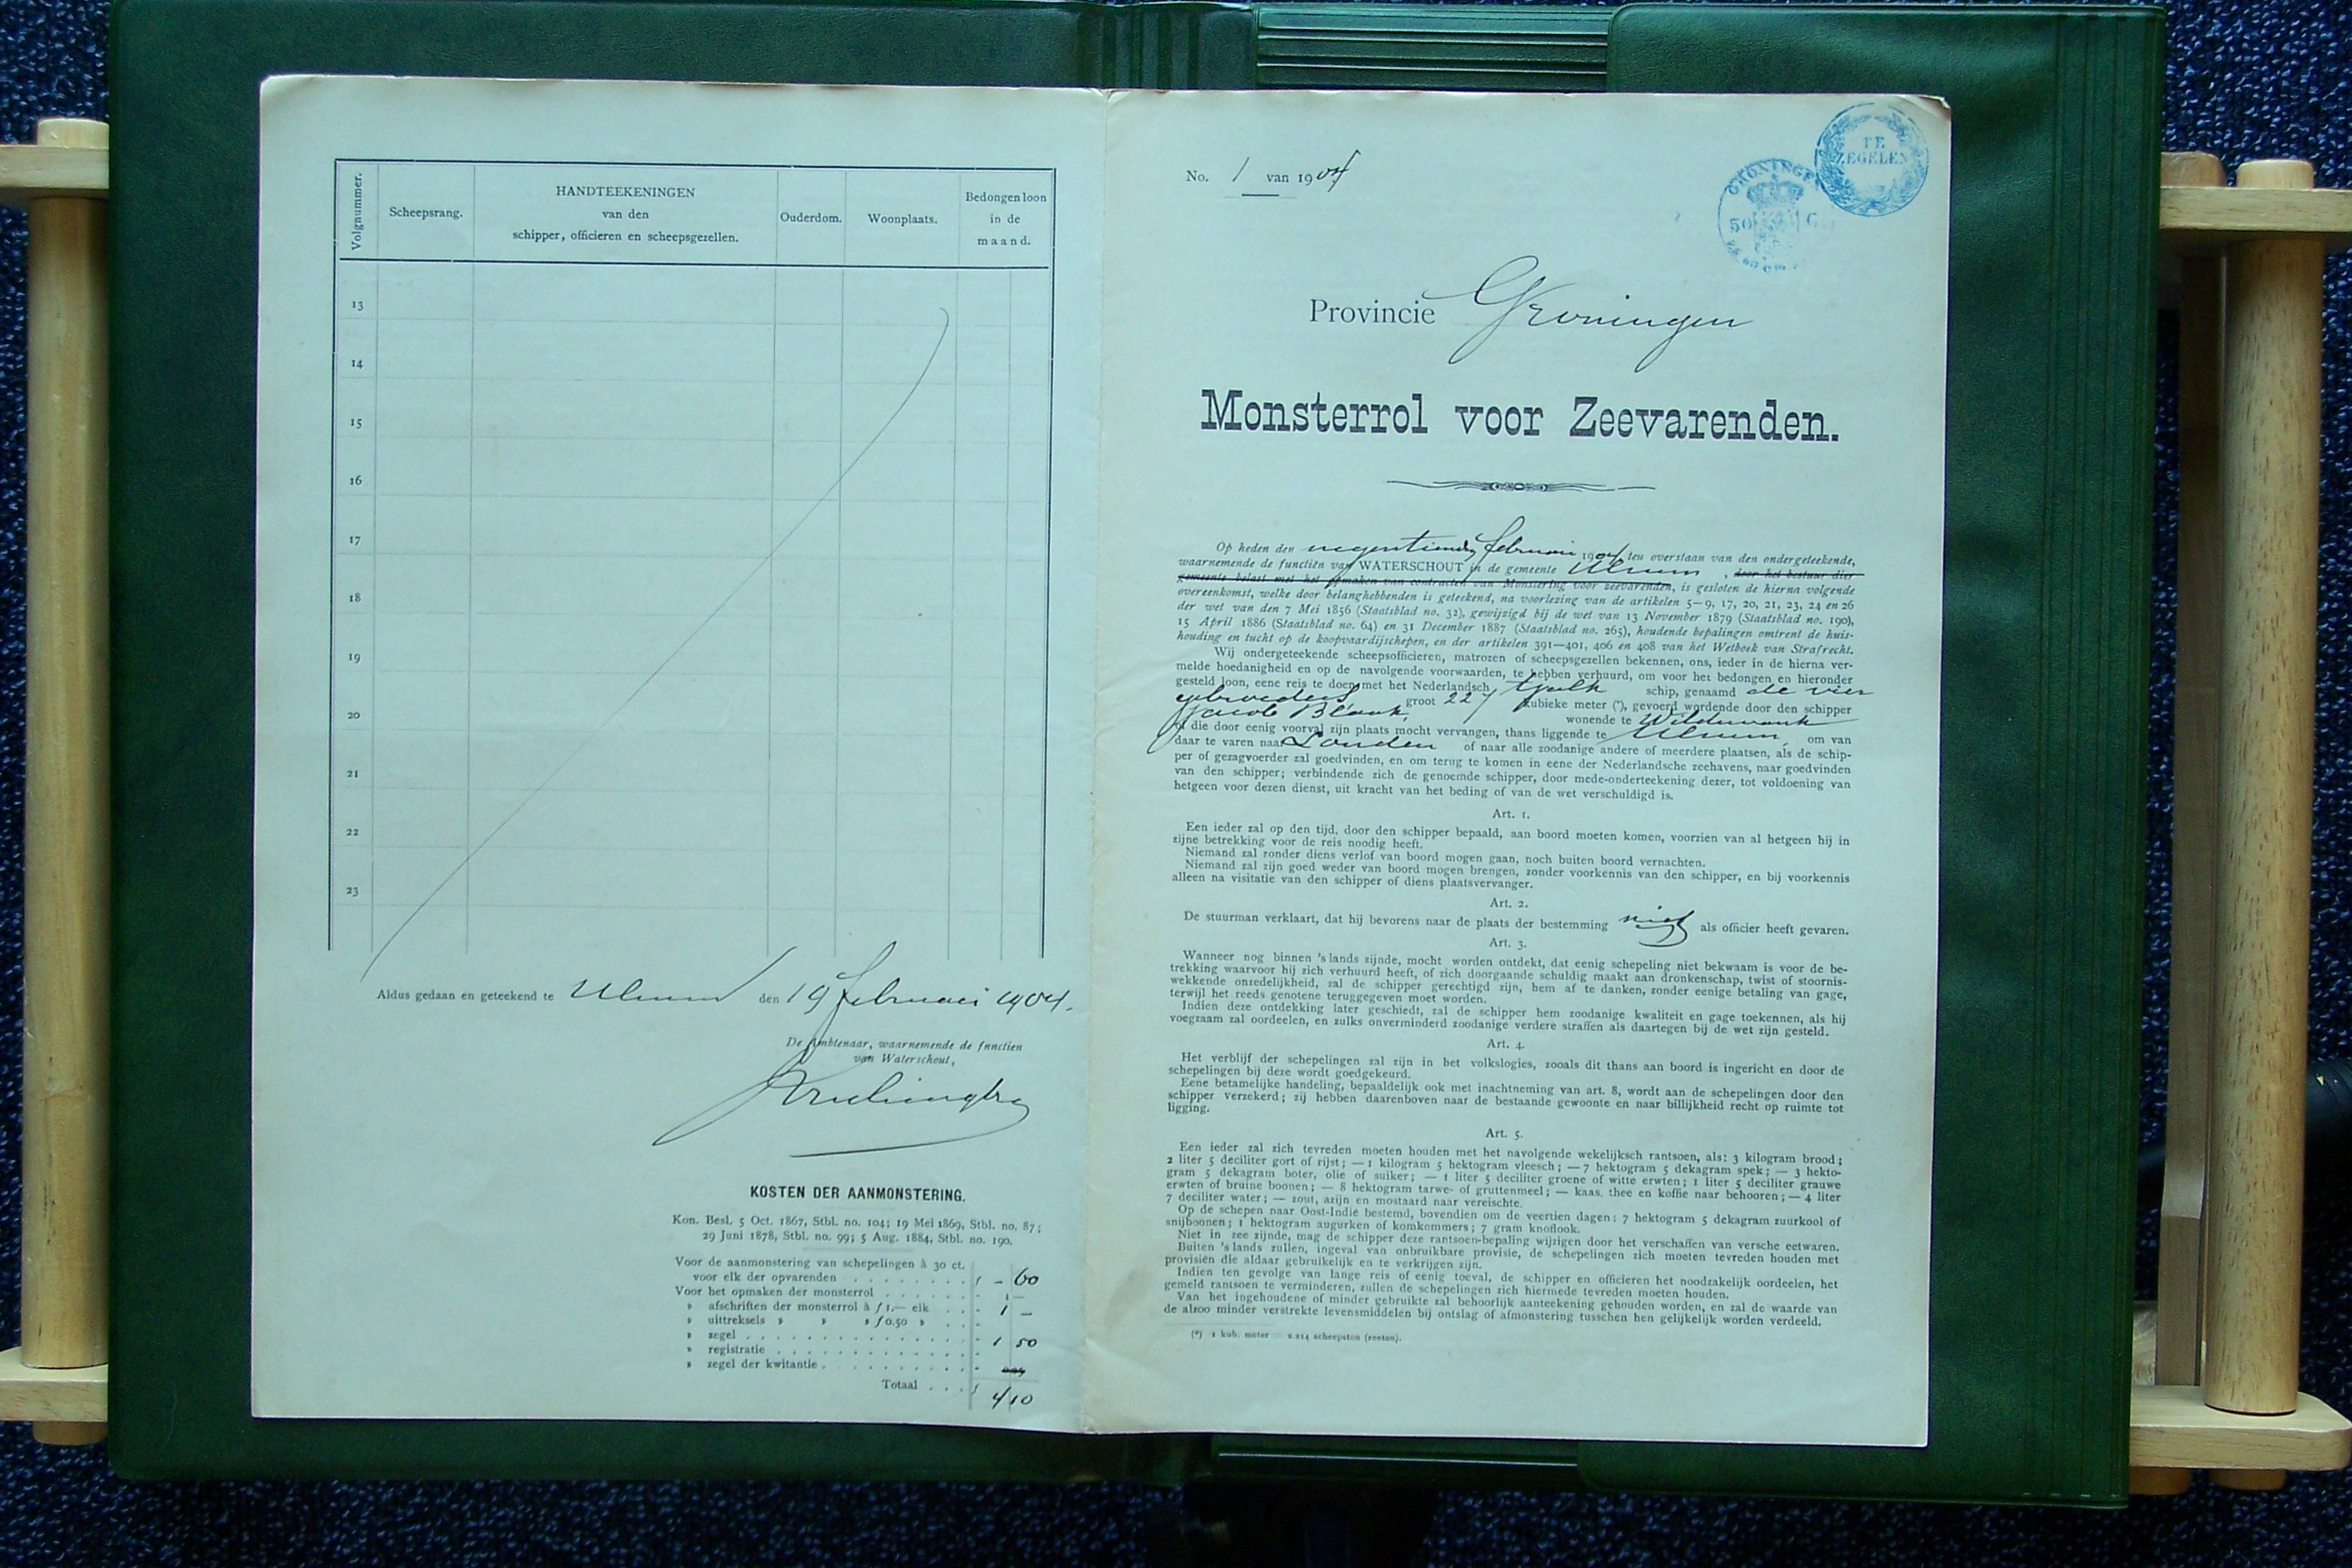 Volgnummer.
Scheepsrang.
HANDTEEKENINGEN
van den
schipper, officieren en scheepsgezellen.
Ouderdom.
Woonplaats.
Bedongen loon
in de
maand.
13
14
15
16
17
18
19
20
21
22
23
Aldus gedaan en geteekend te Ulrum den 19 februari 1904.
De Ambtenaar, waarnemende de functien
van Waterschout,
KOSTEN DER AANMONSTERING.
Kon. Besl. 5 Oct. 1867, Stbl. no. 104; 19 Mei 1869, Stbl. no. 87;
29 Juni 1878, Stbl. no. 99; 5 Aug. 1884, Stbl. no. 190.
Voor de aanmonstering van schepelingen à 30 ct.
voor elk der opvarenden . . . . . . . . f – 60
Voor het opmaken der monsterrol . . . . . . 1 –
» afschriften der monsterrol à f 1.— elk . . . 1 –
» uittreksels » » » f 0.50 » . . .
» zegel . . . . . . . . . . . . . . . 1 50
» registratie . . . . . . . . . . . . .
» zegel der kwitantie . . . . . . . . .
Totaal . . . f 4 10
No. 1 van 1904
TE
ZEGELEN
GRONINGEN
50 C
Provincie Groningen
Monsterrol voor Zeevarenden.
Op heden den negentienden februari 1904 ten overstaan van den ondergeteekende,
waarnemende de functiën van WATERSCHOUT in de gemeente Ulrum, door het bestuur dier
gemeente belast met het opmaken van contracten van Monstering voor zeevarenden, is gesloten de hierna volgende
overeenkomst, welke door belanghebbenden is geteekend, na voorlezing van de artikelen 5—9, 17, 20, 21, 23, 24 en 26
der wet van den 7 Mei 1856 (Staatsblad no. 32), gewijzigd bij de wet van 13 November 1879 (Staatsblad no. 190),
15 April 1886 (Staatsblad no. 64) en 31 December 1887 (Staatsblad no. 265), houdende bepalingen omtrent de huis-
houding en tucht op de koopvaardijschepen, en der artikelen 391—401, 406 en 408 van het Wetboek van Strafrecht.
Wij ondergeteekende scheepsofficieren, matrozen of scheepsgezellen bekennen, ons, ieder in de hierna ver-
melde hoedanigheid en op de navolgende voorwaarden, te hebben verhuurd, om voor het bedongen en hieronder
gesteld loon, eene reis te doen met het Nederlandsch tjalk schip, genaamd de vier
gebroeders groot 227 kubieke meter (*), gevoerd wordende door den schipper
Jacob Blaak, wonende te Wildervank
of die door eenig voorval zijn plaats mocht vervangen, thans liggende te Ulrum, om van
daar te varen naar Londen of naar alle zoodanige andere of meerdere plaatsen, als de schip-
per of gezagvoerder zal goedvinden, en om terug te komen in eene der Nederlandsche zeehavens, naar goedvinden
van den schipper; verbindende zich de genoemde schipper, door mede-onderteekening dezer, tot voldoening van
hetgeen voor dezen dienst, uit kracht van het beding of van de wet verschuldigd is.
Art. 1.
Een ieder zal op den tijd, door den schipper bepaald, aan boord moeten komen, voorzien van al hetgeen hij in
zijne betrekking voor de reis noodig heeft.
Niemand zal zonder diens verlof van boord mogen gaan, noch buiten boord vernachten.
Niemand zal zijn goed weder van boord mogen brengen, zonder voorkennis van den schipper, en bij voorkennis
alleen na visitatie van den schipper of diens plaatsvervanger.
Art. 2.
De stuurman verklaart, dat hij bevorens naar de plaats der bestemming niet als officier heeft gevaren.
Art. 3.
Wanneer nog binnen 's lands zijnde, mocht worden ontdekt, dat eenig schepeling niet bekwaam is voor de be-
trekking waarvoor hij zich verhuurd heeft, of zich doorgaande schuldig maakt aan dronkenschap, twist of stoornis-
wekkende onzedelijkheid, zal de schipper gerechtigd zijn, hem af te danken, zonder eenige betaling van gage,
terwijl het reeds genotene teruggegeven moet worden.
Indien deze ontdekking later geschiedt, zal de schipper hem zoodanige kwaliteit en gage toekennen, als hij
voegzaam zal oordeelen, en zulks onverminderd zoodanige verdere straffen als daartegen bij de wet zijn gesteld.
Art. 4.
Het verblijf der schepelingen zal zijn in het volkslogies, zooals dit thans aan boord is ingericht en door de
schepelingen bij deze wordt goedgekeurd.
Eene betamelijke handeling, bepaaldelijk ook met inachtneming van art. 8, wordt aan de schepelingen door den
schipper verzekerd; zij hebben daarenboven naar de bestaande gewoonte en naar billijkheid recht op ruimte tot
ligging.
Art. 5.
Een ieder zal zich tevreden moeten houden met het navolgende wekelijksch rantsoen, als: 3 kilogram brood;
2 liter 5 deciliter gort of rijst; — 1 kilogram 5 hektogram vleesch; — 7 hektogram 5 dekagram spek; — 3 hekto-
gram 5 dekagram boter, olie of suiker; — 1 liter 5 deciliter groene of witte erwten; 1 liter 5 deciliter grauwe
erwten of bruine boonen; — 8 hektogram tarwe- of gruttenmeel; — kaas, thee en koffie naar behooren; — 4 liter
7 deciliter water; — zout, azijn en mostaard naar vereischte.
Op de schepen naar Oost-Indië bestemd, bovendien om de veertien dagen: 7 hektogram 5 dekagram zuurkool of
snijboonen; 1 hektogram augurken of komkommers; 7 gram knoflook.
Niet in zee zijnde, mag de schipper deze rantsoen-bepaling wijzigen door het verschaffen van versche eetwaren.
Buiten 's lands zullen, ingeval van onbruikbare provisie, de schepelingen zich moeten tevreden houden met
provisiën die aldaar gebruikelijk en te verkrijgen zijn.
Indien ten gevolge van lange reis of eenig toeval, de schipper en officieren het noodzakelijk oordeelen, het
gemeld rantsoen te verminderen, zullen de schepelingen zich hiermede tevreden moeten houden.
Van het ingehoudene of minder gebruikte zal behoorlijk aanteekening gehouden worden, en zal de waarde van
de alzoo minder verstrekte levensmiddelen bij ontslag of afmonstering tusschen hen gelijkelijk worden verdeeld.
(*) 1 kub. meter = 2.214 scheepston (zeeton).